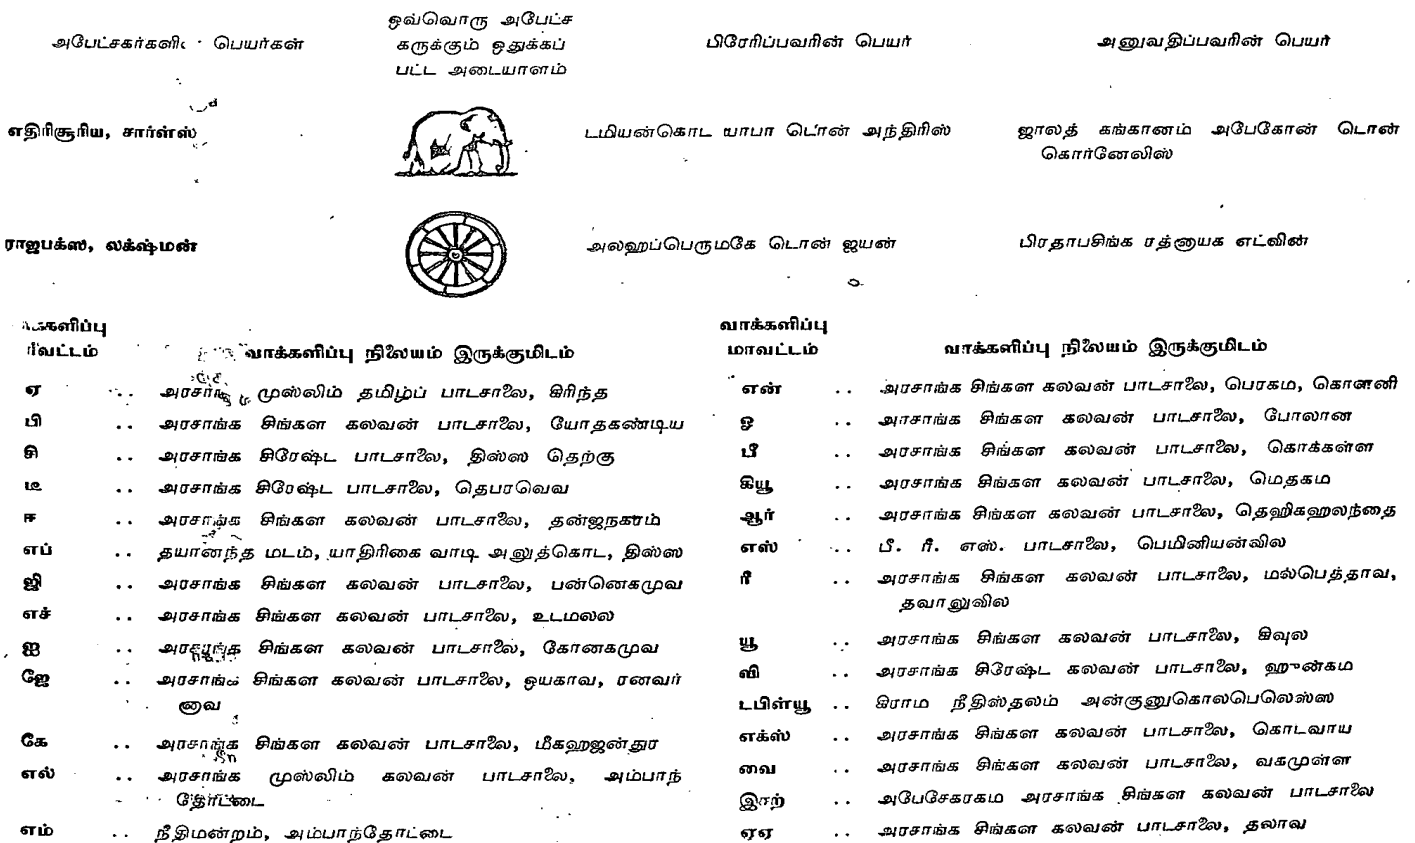 ஒவ்வொரு அபேட்ச
அபேட்சகர்களின் பெயர்கள் கருக்கும் ஒதுக்கப் பிரேரிப்பவரின் பெயர் அனுவதிப்பவரின் பெயர்
பட்ட அடையாளம்
எதிரிசூரிய, சார்ள்ஸ் டமியன்கொட யாபா டொன் அந்திரிஸ் ஜாலத் கங்கானம் அபேகோன் டொன்
கொர்னேலிஸ்
ராஜபக்ஸ, லக்ஷ்மன் அலஹப்பெருமகே டொன் ஜயன் பிரதாபசிங்க ரத்னாயக எட்வின்
வாக்களிப்பு
மாவட்டம் வாக்களிப்பு நிலையம் இருக்குமிடம்
ஏ .. அரசாங்க முஸ்லிம் தமிழ்ப் பாடசாலை, கிரிந்த
பி .. அரசாங்க சிங்கள கலவன் பாடசாலை, யோதகண்டிய
சி .. அரசாங்க சிரேஷ்ட பாடசாலை, திஸ்ஸ தெற்கு
டீ .. அரசாங்க சிரேஷ்ட பாடசாலை, தெபரவெவ
ஈ .. அரசாங்க சிங்கள கலவன் பாடசாலை, தன்ஜநகரம்
எப் .. தயானந்த மடம், யாதிரிகை வாடி அலுத்கொட, திஸ்ஸ
ஜி .. அரசாங்க சிங்கள கலவன் பாடசாலை, பன்னெகமுவ
எச் .. அரசாங்க சிங்கள கலவன் பாடசாலை, உடமலல
ஐ .. அரசாங்க சிங்கள கலவன் பாடசாலை, கோனகமுவ
ஜே .. அரசாங்க சிங்கள கலவன் பாடசாலை, ஒயகாவ, ரனவர்
னாவ
கே .. அரசாங்க சிங்கள கலவன் பாடசாலை, மீகஹஜன்துர
எல் .. அரசாங்க முஸ்லிம் கலவன் பாடசாலை, அம்பாந்
தோட்டை
எம் .. நீதிமன்றம், அம்பாந்தோட்டை
வாக்களிப்பு
மாவட்டம் வாக்களிப்பு நிலையம் இருக்குமிடம்
என் .. அரசாங்க சிங்கள கலவன் பாடசாலை, பெரகம, கொனனி
ஓ .. அரசாங்க சிங்கள கலவன் பாடசாலை, போலான
பீ .. அரசாங்க சிங்கள கலவன் பாடசாலை, கொக்கள்ள
கியூ .. அரசாங்க சிங்கள கலவன் பாடசாலை, மெதகம
ஆர் .. அரசாங்க சிங்கள கலவன் பாடசாலை, தெஹிகஹலந்தை
எஸ் .. பீ. ரீ. எஸ். பாடசாலை, பெமினியன்வில
ரீ .. அரசாங்க சிங்கள கலவன் பாடசாலை, மல்பெத்தாவ,
தவாலுவில
யூ .. அரசாங்க சிங்கள கலவன் பாடசாலை, கிவுல
வி .. அரசாங்க சிரேஷ்ட கலவன் பாடசாலை, ஹுன்கம
டபிள்யூ .. கிராம நீதிஸ்தலம் அன்குனுகொலபெலெஸ்ஸ
எக்ஸ் .. அரசாங்க சிங்கள கலவன் பாடசாலை, கொடவாய
வை .. அரசாங்க சிங்கள கலவன் பாடசாலை, வகமுள்ள
இசற் .. அபேசேகரகம அரசாங்க சிங்கள கலவன் பாடசாலை
ஏஏ .. அரசாங்க சிங்கள கலவன் பாடசாலை, தலாவ